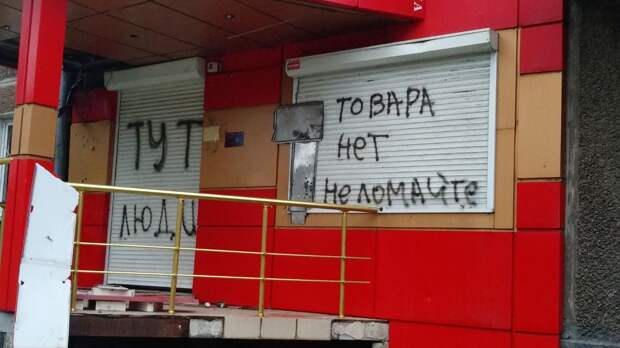 ТУТ
ЛЮДИ
ТОВАРА
НЕТ
НЕ ЛОМАЙТЕ